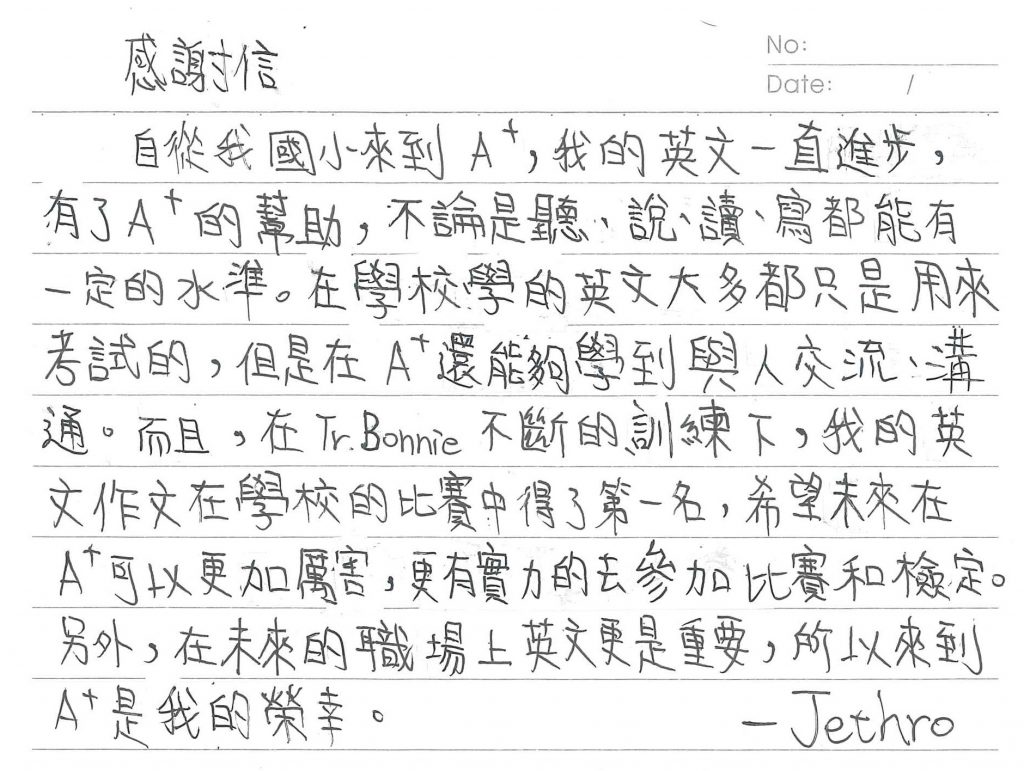 No:
感謝信
Date: /
自從我國小來到 A⁺，我的英文一直進步，
有了A⁺的幫助，不論是聽、說、讀、寫都能有
一定的水準。在學校學的英文大多都只是用來
考試的，但是在 A⁺還能夠學到與人交流、溝
通。而且，在Tr.Bonnie 不斷的訓練下，我的英
文作文在學校的比賽中得了第一名，希望未來在
A⁺可以更加厲害，更有實力的去參加比賽和檢定。
另外，在未來的職場上英文更是重要，所以來到
A⁺是我的榮幸。
－Jethro